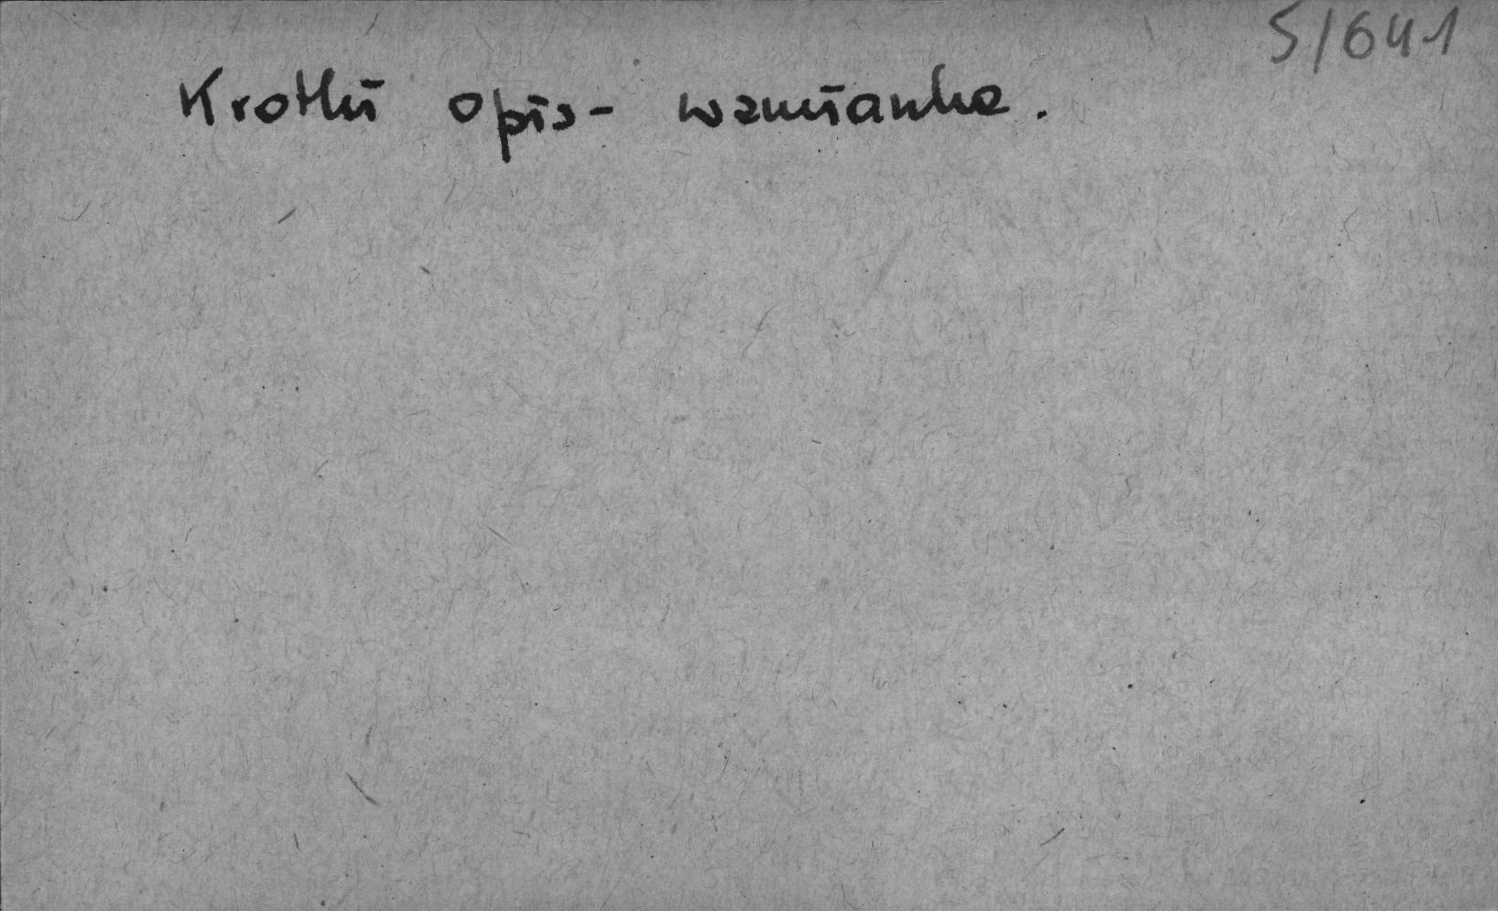 5/641
Krotki opis- wzmianka.